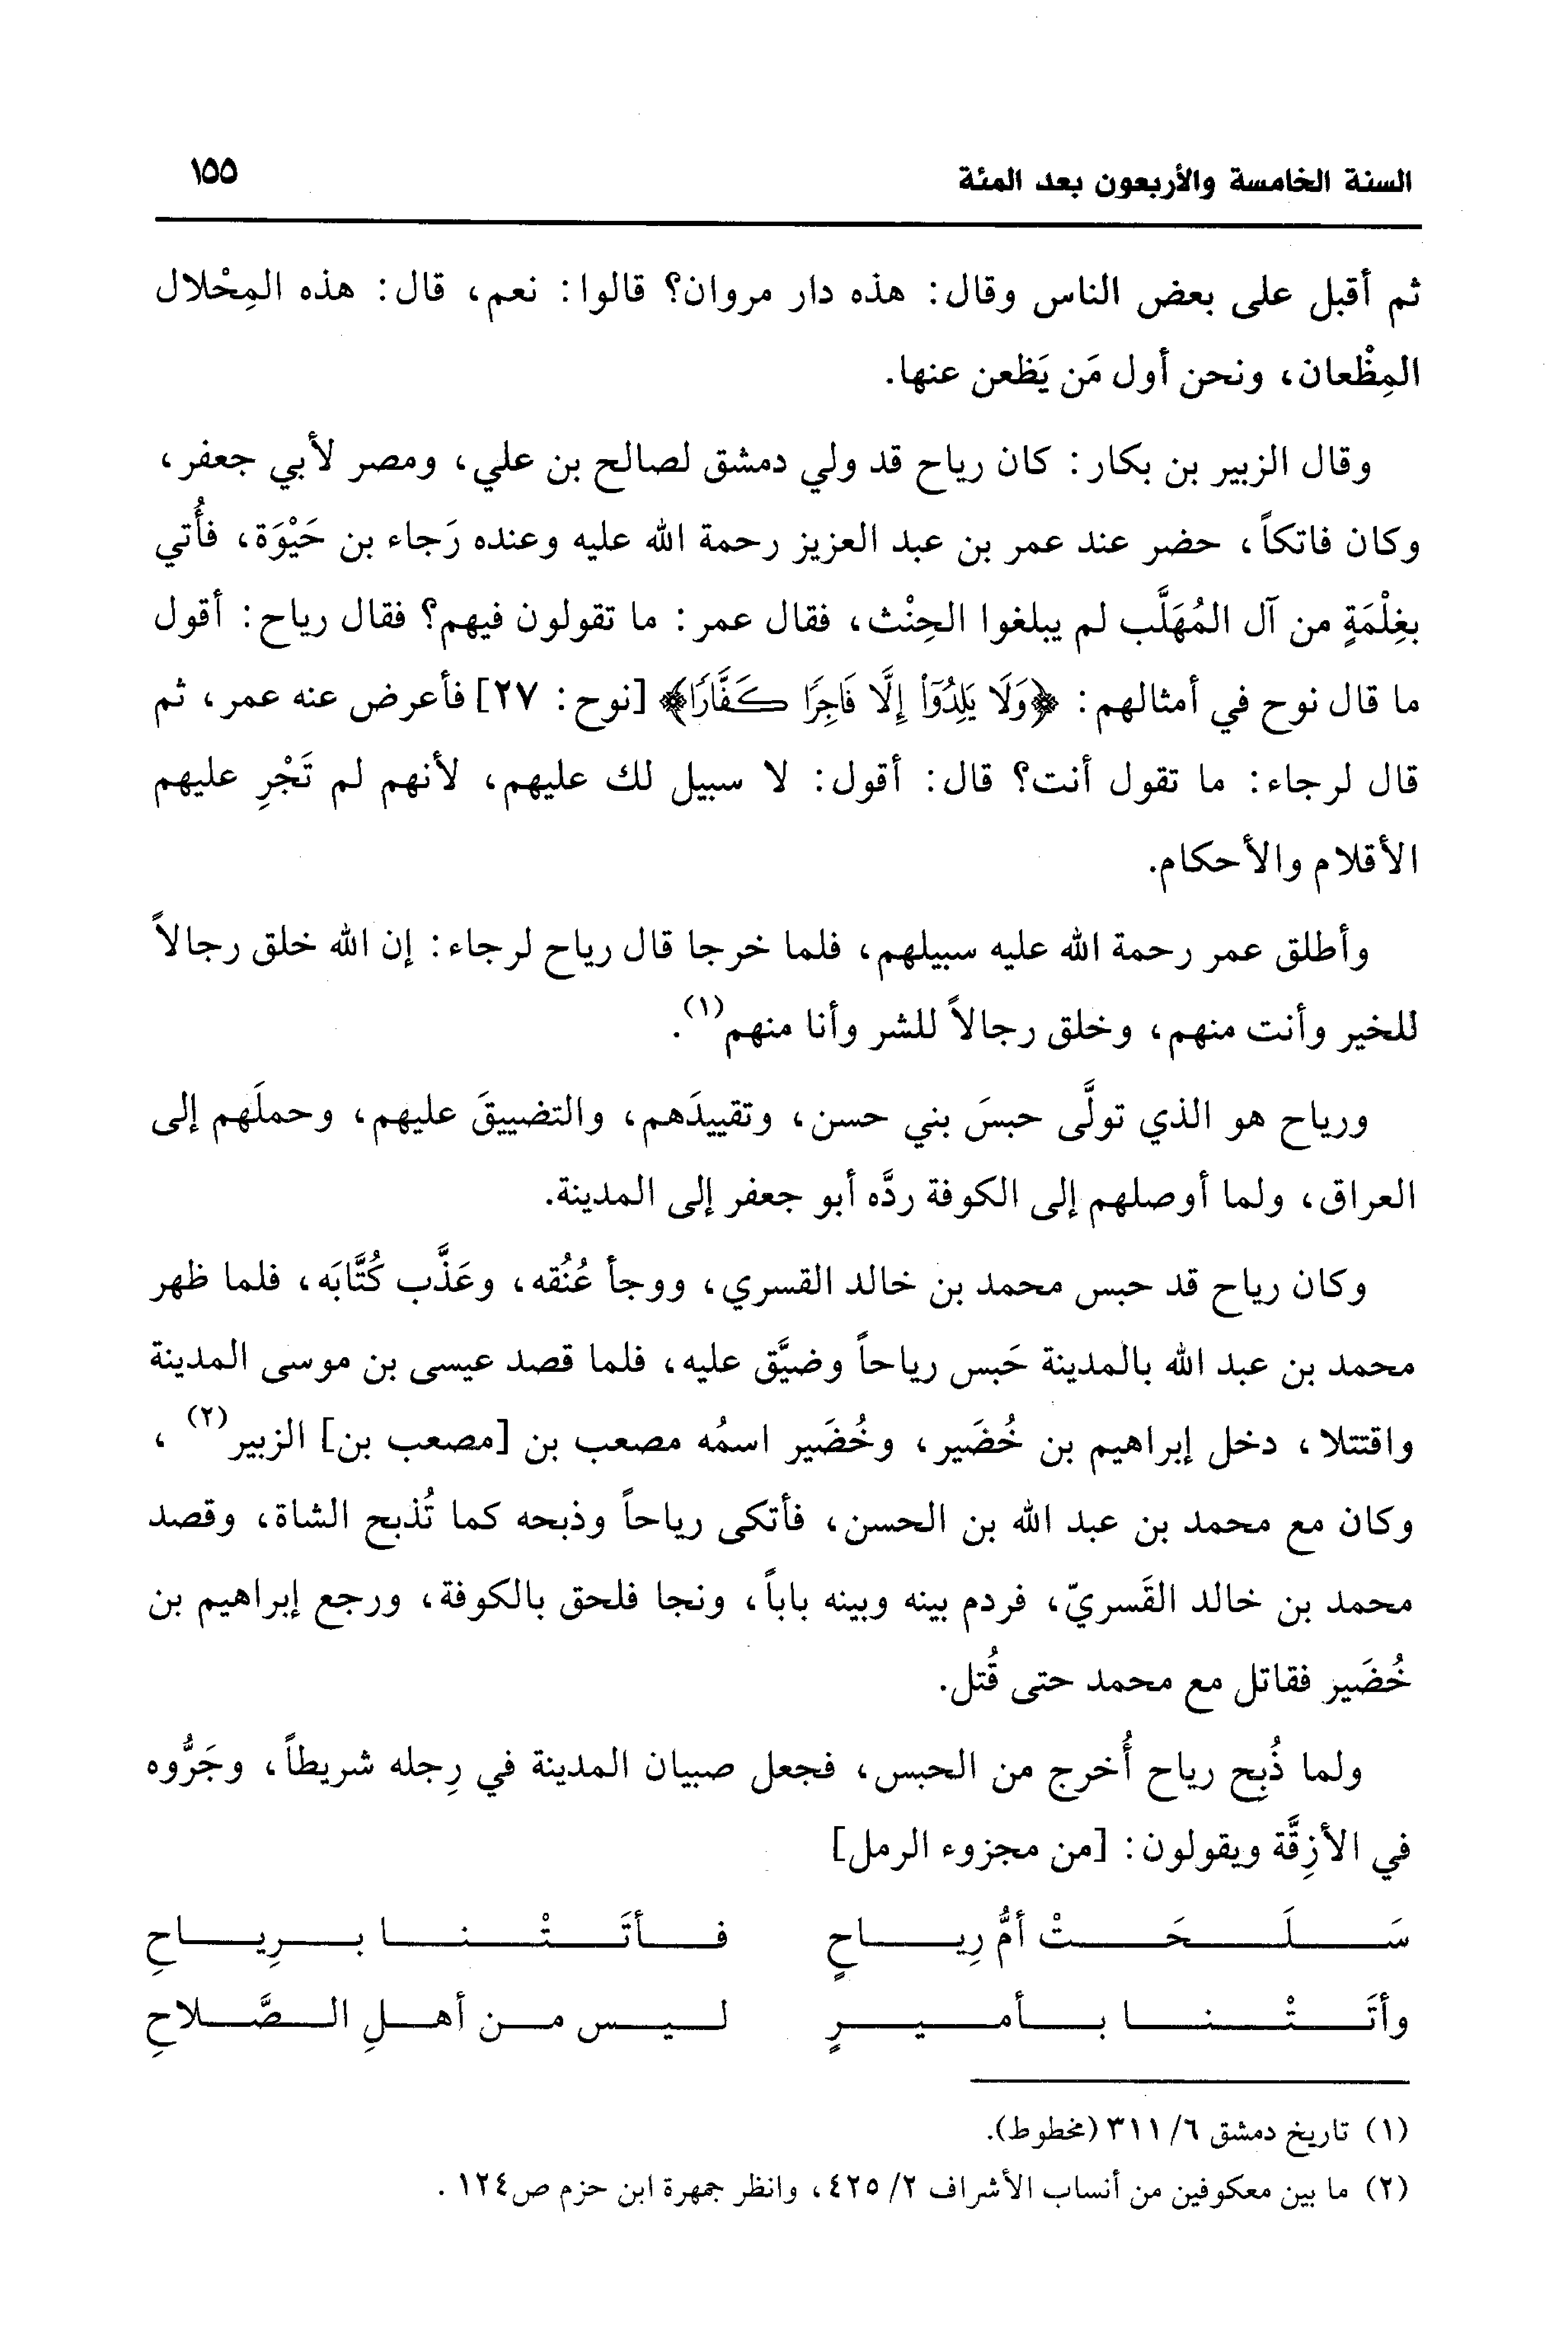 السنة الخامسة والأربعون بعد المئة ١٥٥
ثم أقبل على بعض الناس وقال: هذه دار مروان؟ قالوا: نعم، قال: هذه المِحْلال
المِظْعان، ونحن أول مَن يَظعن عنها.
وقال الزبير بن بكار: كان رياح قد ولي دمشق لصالح بن علي، ومصر لأبي جعفر،
وكان فاتكاً، حضر عند عمر بن عبد العزيز رحمة الله عليه وعنده رَجاء بن حَيْوَة، فأُتي
بغِلْمَةٍ من آل المُهَلَّب لم يبلغوا الحِنْث، فقال عمر: ما تقولون فيهم؟ فقال رياح: أقول
ما قال نوح في أمثالهم: ﴿وَلَا يَلِدُوٓاْ إِلَّا فَاجِرًا كَفَّارًا﴾ [نوح: ٢٧] فأعرض عنه عمر، ثم
قال لرجاء: ما تقول أنت؟ قال: أقول: لا سبيل لك عليهم، لأنهم لم تَجْرِ عليهم
الأقلام والأحكام.
وأطلق عمر رحمة الله عليه سبيلهم، فلما خرجا قال رياح لرجاء: إن الله خلق رجالاً
للخير وأنت منهم، وخلق رجالاً للشر وأنا منهم(١).
ورياح هو الذي تولَّى حبسَ بني حسن، وتقييدَهم، والتضييقَ عليهم، وحملَهم إلى
العراق، ولما أوصلهم إلى الكوفة ردَّه أبو جعفر إلى المدينة.
وكان رياح قد حبس محمد بن خالد القسري، ووجأ عُنُقه، وعَذَّب كُتَّابَه، فلما ظهر
محمد بن عبد الله بالمدينة حَبس رياحاً وضيَّق عليه، فلما قصد عيسى بن موسى المدينة
واقتتلا، دخل إبراهيم بن خُضَير، وخُضَير اسمُه مصعب بن [مصعب بن] الزبير(٢)،
وكان مع محمد بن عبد الله بن الحسن، فأتكى رياحاً وذبحه كما تُذبح الشاة، وقصد
محمد بن خالد القَسريّ، فردم بينه وبينه باباً، ونجا فلحق بالكوفة، ورجع إبراهيم بن
خُضَير فقاتل مع محمد حتى قُتل.
ولما ذُبِح رياح أُخرج من الحبس، فجعل صبيان المدينة في رِجله شريطاً، وجَرُّوه
في الأزِقَّة ويقولون: [من مجزوء الرمل]
سَلَحَتْ أمُّ رِياحٍ فأتَتْنا برِياحِ
وأتَتْنا بأميرٍ ليس من أهلِ الصَّلاحِ
(١) تاريخ دمشق ٦/ ٣١١ (مخطوط).
(٢) ما بين معكوفين من أنساب الأشراف ٢/ ٤٢٥، وانظر جمهرة ابن حزم ص١٢٤ .